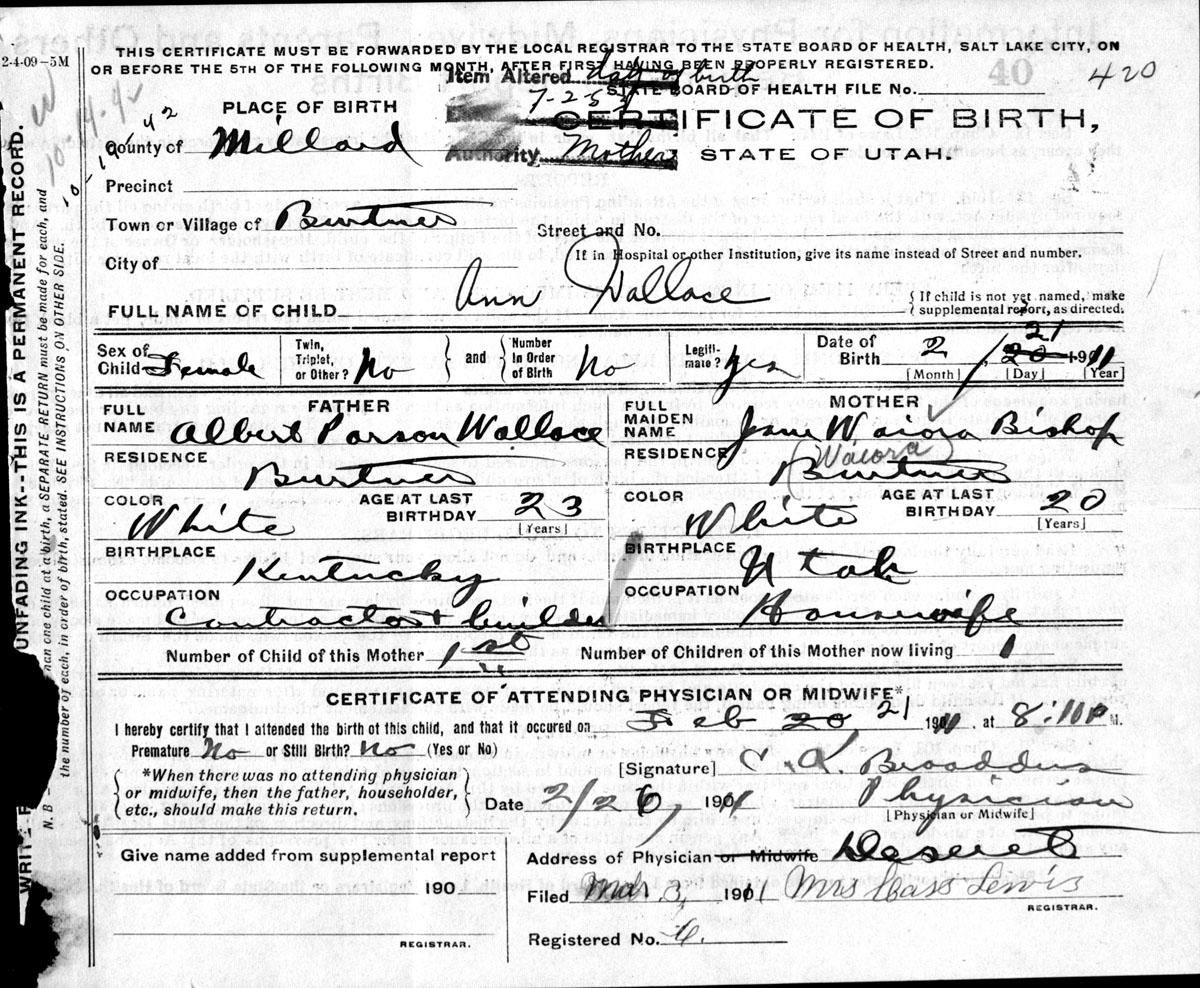 THIS CERTIFICATE MUST BE FORWARDED BY THE LOCAL REGISTRAR TO THE STATE BOARD OF HEALTH, SALT LAKE CITY, ON
2-4-09-5M OR BEFORE THE 5TH OF THE FOLLOWING MONTH, AFTER FIRST HAVING BEEN PROPERLY REGISTERED.
Item Altered date of birth
STATE BOARD OF HEALTH FILE No. 420
7-2-5
PLACE OF BIRTH
CERTIFICATE OF BIRTH,
County of Millard
Authority Mother
STATE OF UTAH.
Precinct
Town or Village of Burtner
Street and No.
City of
If in Hospital or other Institution, give its name instead of Street and number.
FULL NAME OF CHILD Ann Wallace
{ If child is not yet named, make
supplemental report, as directed.
Sex of Child Female
Twin, Triplet, or Other? No
and
Number In Order of Birth No
Legiti-mate? Yes
Date of Birth 2 / 20 21 1911
[Month] [Day] [Year]
FATHER
FULL NAME Albert Parson Wallace
RESIDENCE Burtner
COLOR White
AGE AT LAST BIRTHDAY 23
[Years]
BIRTHPLACE Kentucky
OCCUPATION Contractor & builder
MOTHER
FULL MAIDEN NAME Jane Waiora Bishop
(Waiora)
RESIDENCE Burtner
COLOR White
AGE AT LAST BIRTHDAY 20
[Years]
BIRTHPLACE Utah
OCCUPATION Housewife
Number of Child of this Mother 1st
Number of Children of this Mother now living 1
CERTIFICATE OF ATTENDING PHYSICIAN OR MIDWIFE*
I hereby certify that I attended the birth of this child, and that it occured on Feb 20 21 1911 at 8:10 P M.
Premature No or Still Birth? No (Yes or No)
*When there was no attending physician
or midwife, then the father, householder,
etc., should make this return.
[Signature] C. A. Broaddus
Date 2/26, 1901 Physician
[Physician or Midwife]
Give name added from supplemental report
190
REGISTRAR.
Address of Physician or Midwife Deseret
Filed Mar. 3, 1911 Mrs Cass Lewis
REGISTRAR.
Registered No. 6.
UNFADING INK--THIS IS A PERMANENT RECORD.
than one child at a birth, a SEPARATE RETURN must be made for each, and
the number of each, in order of birth, stated. SEE INSTRUCTIONS ON OTHER SIDE.
N. B.